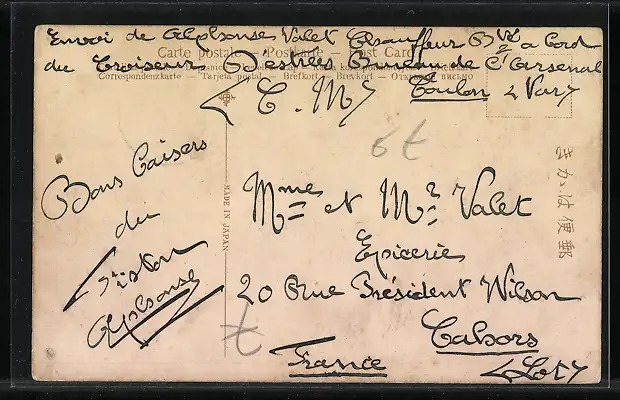 Envoi de Alphonse Valet Chauffeur Bté a bord
Carte postale — Postkarte — Post Card
du Croiseur D'Estrées Bureau de l'Arsenal
Correspondenzkarte — Tarjeta postal — Brefkort — Brevkort — Открытое письмо
(C. M)
Toulon (Var)
6 t
Bons Baisers
du
Fiston
Alphonse
MADE IN JAPAN
Mmes et Mr Valet
Epicerie
20 Rue Président Wilson
Cahors
(Lot)
France
t
郵便はかき